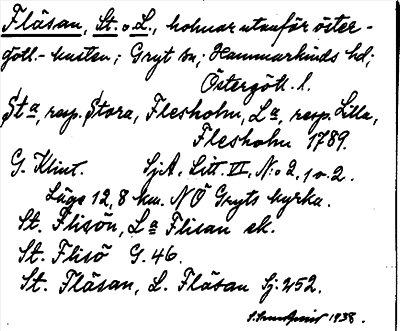 Fläsan, St. o L., holmar utanför öster-
götl. kusten; Gryt sn; Hammarkinds hd;
Östergötl. l.
St a, resp. Stora, Flesholm, L a, resp. Lilla,
Flesholm 1789.
G. Klint. SjA, Litt. III, N:o 2, 1 o 2.
Läge 12,8 km. NÖ Gryts kyrka.
St. Flisön, L a Flisan sk.
St. Flisö G. 46.
St. Fläsan, L. Fläsan Sj. 252.
1938.